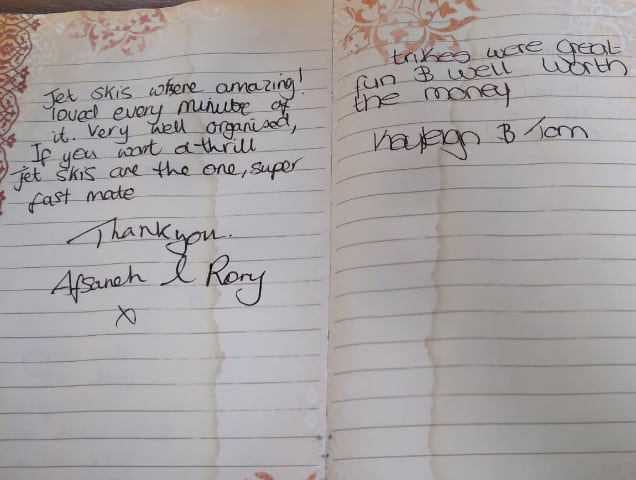 Jet skis where amazing!
loved every minute of
it. Very well organised,
If you want a thrill
jet skis are the one, super
fast mate
Thank you.
Afsaneh & Rory
x
trikes were great
fun & well worth
the money
Kayleigh & Tom